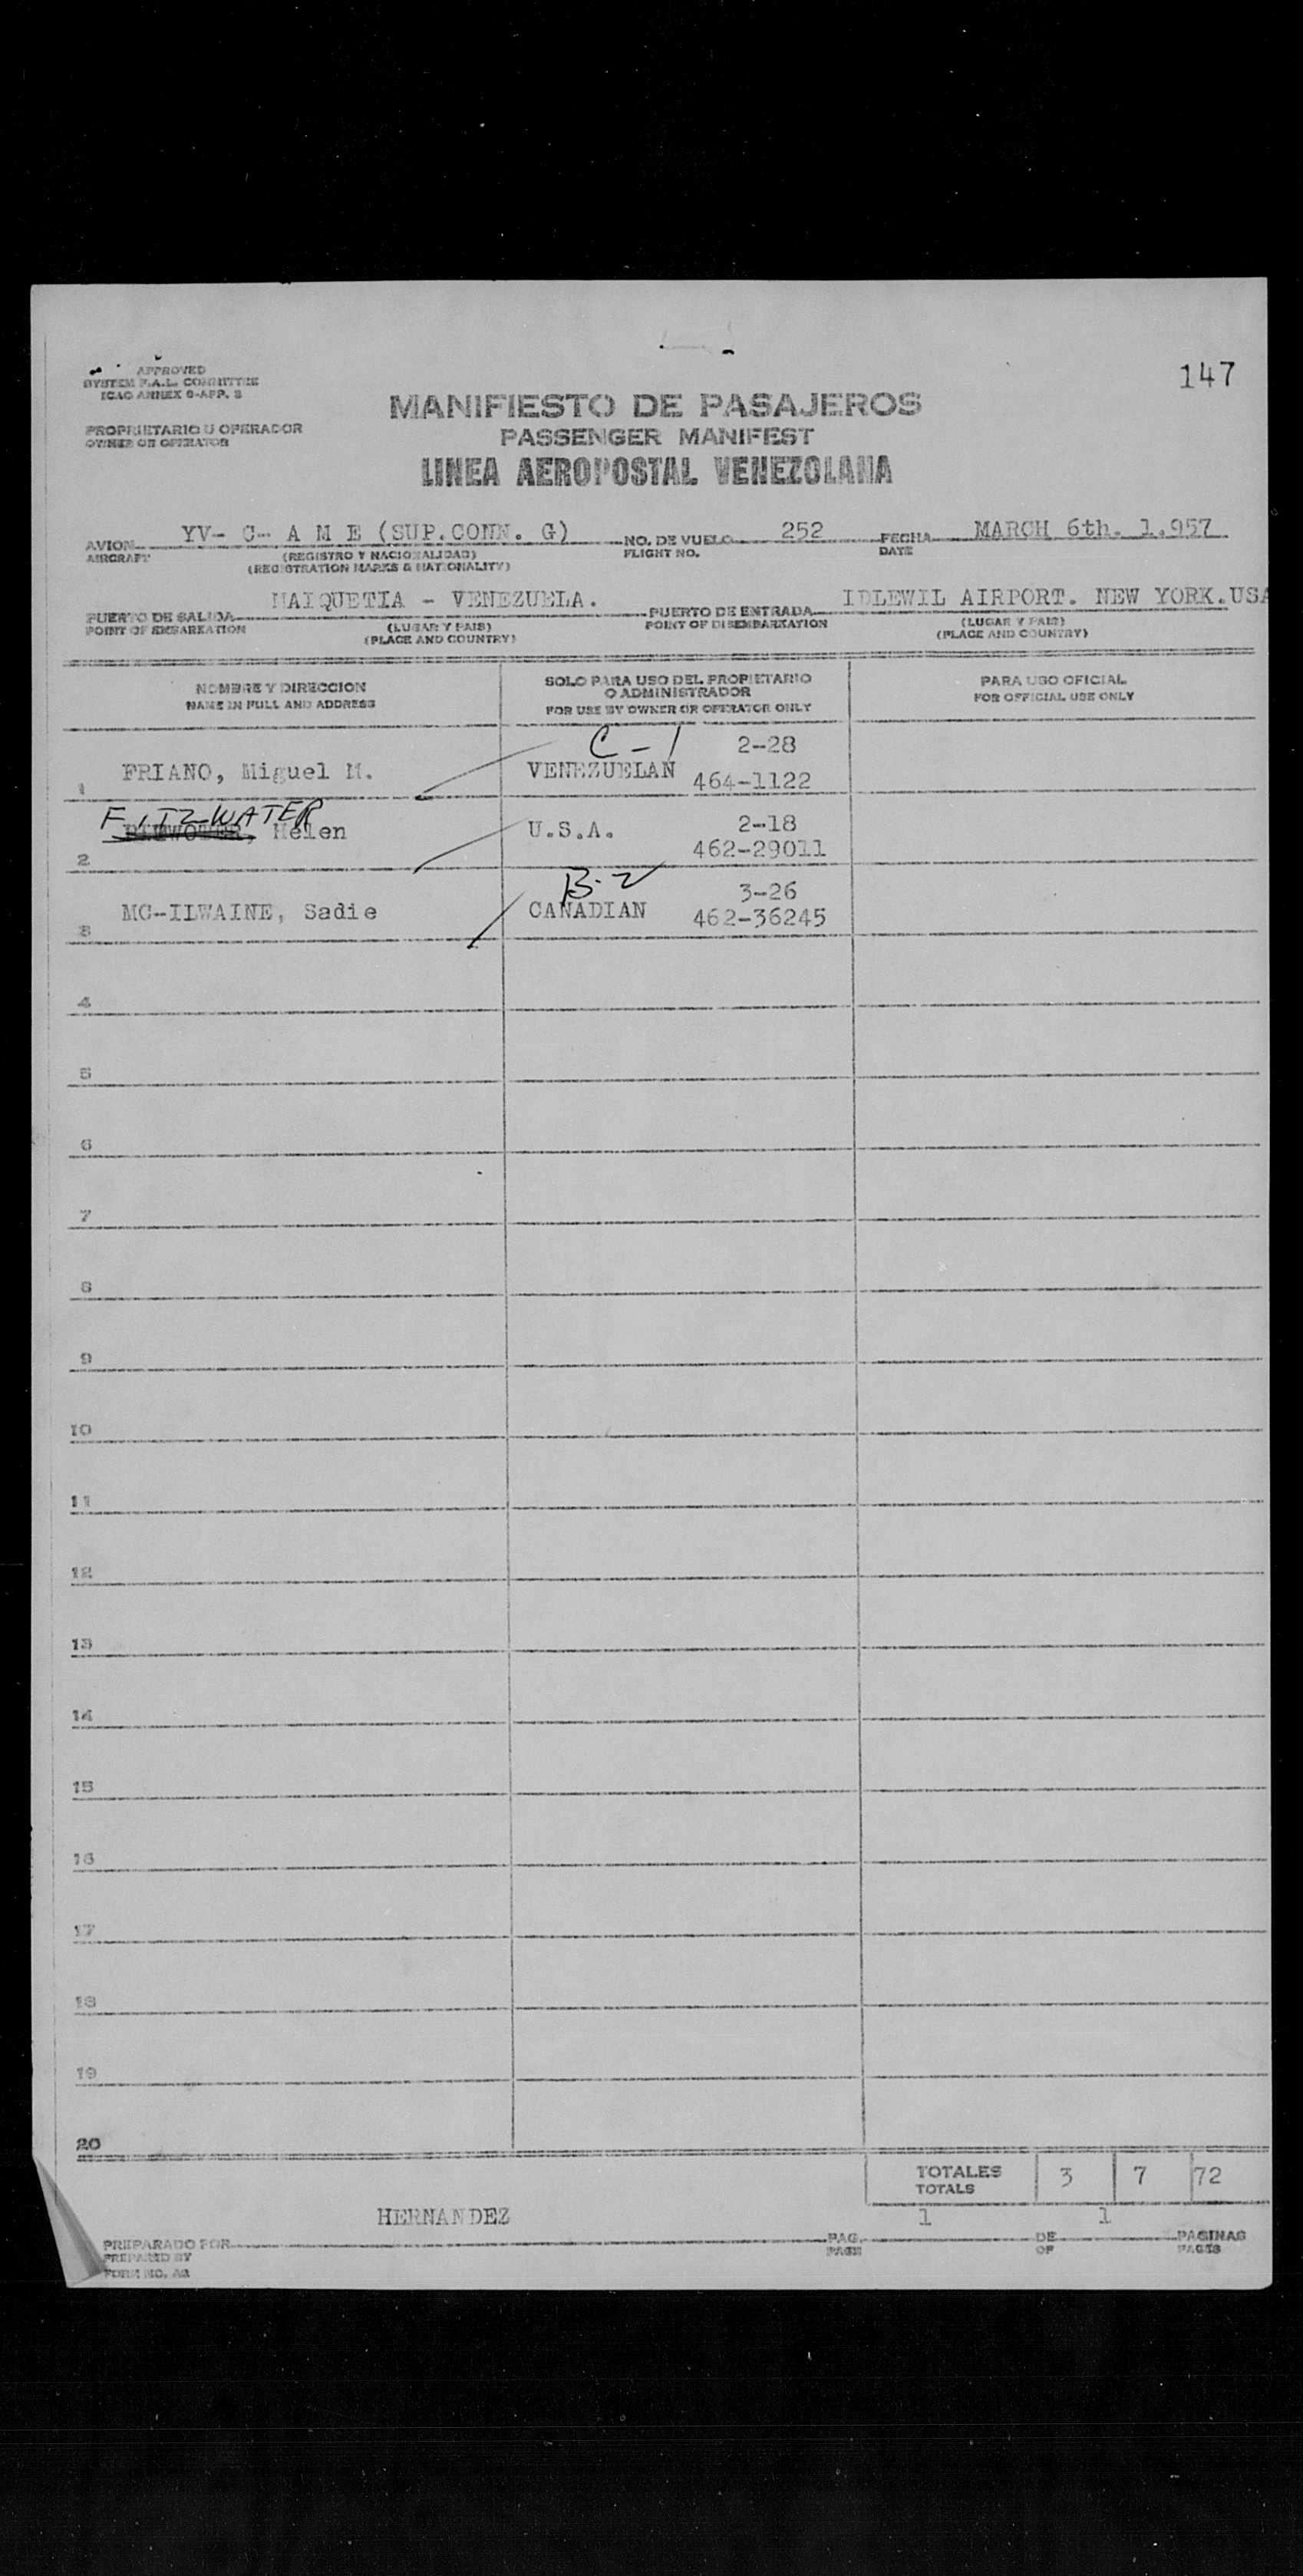 147
APPROVED
SYSTEM F.A.L. COMMITTEE
ICAO ANNEX 9-APP. 3
MANIFIESTO DE PASAJEROS
PROPRIETARIO U OPERADOR
OWNER OR OPERATOR
PASSENGER MANIFEST
LINEA AEROPOSTAL VENEZOLANA
AVION YV- C- A M E (SUP.CONN. G) NO. DE VUELO 252 FECHA MARCH 6th. 1.957
AIRCRAFT (REGISTRO Y NACIONALIDAD) FLIGHT NO. DATE
(REGISTRATION MARKS & NATIONALITY)
PUERTO DE SALIDA MAIQUETIA - VENEZUELA. PUERTO DE ENTRADA IDLEWIL AIRPORT. NEW YORK.USA
POINT OF EMBARKATION (LUGAR Y PAIS) POINT OF DISEMBARKATION (LUGAR Y PAIS)
(PLACE AND COUNTRY) (PLACE AND COUNTRY)
NOMBRE Y DIRECCION SOLO PARA USO DEL PROPIETARIO PARA USO OFICIAL
O ADMINISTRADOR
NAME IN FULL AND ADDRESS FOR USE BY OWNER OR OPERATOR ONLY FOR OFFICIAL USE ONLY
C-1 2-28
1 FRIANO, Miguel M. VENEZUELAN 464-1122
FITZWATER
2 Helen U.S.A. 2-18
462-29011
B-2 3-26
3 MC-ILWAINE, Sadie CANADIAN 462-36245
4
5
6
7
8
9
10
11
12
13
14
15
16
17
18
19
20
TOTALES 3 7 72
TOTALS
HERNANDEZ 1 1
PREPARADO POR PAG. DE PAGINAS
PREPARED BY PAGE OF PAGES
FORM NO. A2